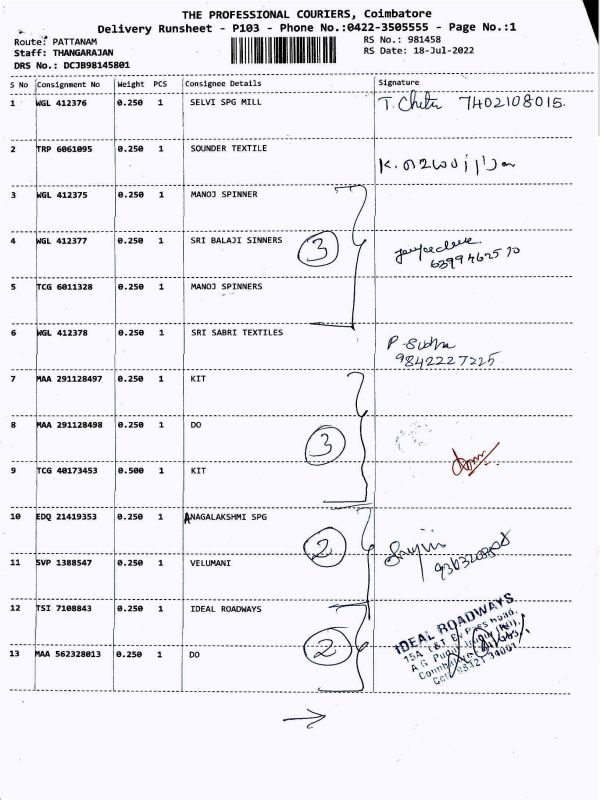 THE PROFESSIONAL COURIERS, Coimbatore
Delivery Runsheet - P103 - Phone No.:0422-3505555 - Page No.:1
Route: PATTANAM RS No.: 981458
Staff: THANGARAJAN RS Date: 18-Jul-2022
DRS No.: DCJB98145801
S No Consignment No Weight PCS Consignee Details Signature
1 WGL 412376 0.250 1 SELVI SPG MILL T. Chitu 7402108015
2 TRP 6061095 0.250 1 SOUNDER TEXTILE
3 WGL 412375 0.250 1 MANOJ SPINNER
4 WGL 412377 0.250 1 SRI BALAJI SINNERS 3
5 TCG 6011328 0.250 1 MANOJ SPINNERS
6 WGL 412378 0.250 1 SRI SABRI TEXTILES P. Sudha
9842227225
7 MAA 291128497 0.250 1 KIT
8 MAA 291128498 0.250 1 DO 3
9 TCG 40173453 0.500 1 KIT
10 EDQ 21419353 0.250 1 ANAGALAKSHMI SPG 2
11 SVP 1388547 0.250 1 VELUMANI
12 TSI 7108843 0.250 1 IDEAL ROADWAYS IDEAL ROADWAYS
13 MAA 562328013 0.250 1 DO 2